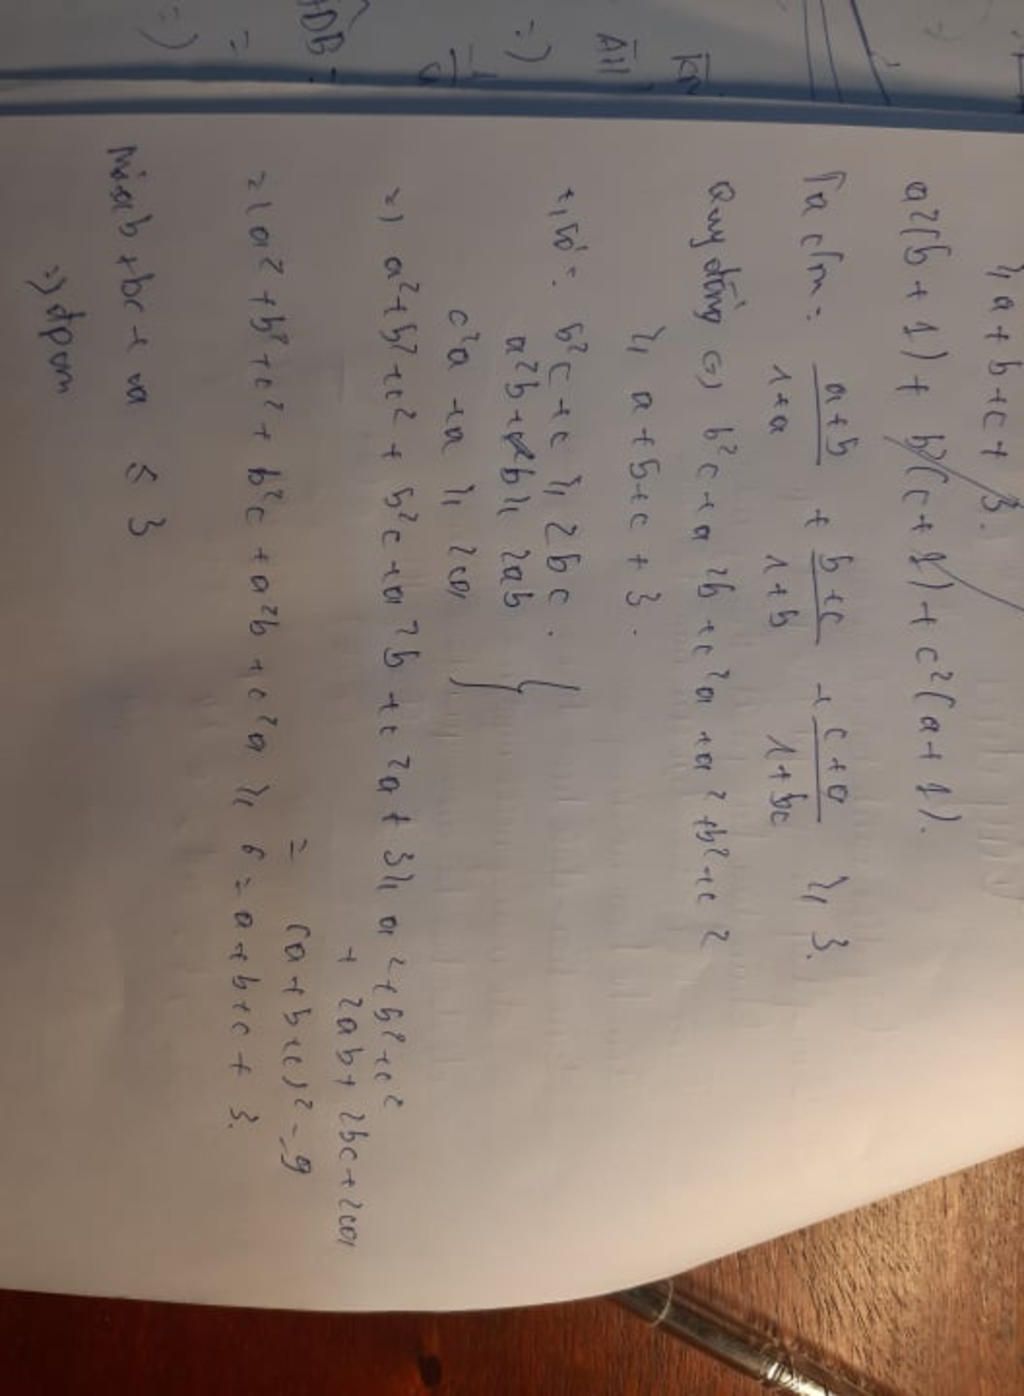 ≥ a + b + c + 3.
a²(b + 1) + b²(c + 1) + c²(a + 1).
Ta c/m: (a+b)/(1+a) + (b+c)/(1+b) + (c+a)/(1+bc) ≥ 3.
Quy đồng (=) b²c + a²b + c²a + a² + b² + c²
≥ a + b + c + 3.
+, Có: b²c + c ≥ 2bc.
a²b + b ≥ 2ab
c²a + a ≥ 2ca
=) a² + b² + c² + b²c + a²b + c²a + 3 ≥ a² + b² + c²
+ 2ab + 2bc + 2ca
= (a + b + c)² = 9
=) a² + b² + c² + b²c + a²b + c²a ≥ 6 = a + b + c + 3.
Mà ab + bc + ca ≤ 3
=) đpcm
KN
AH
=)
ADB =
=
=)